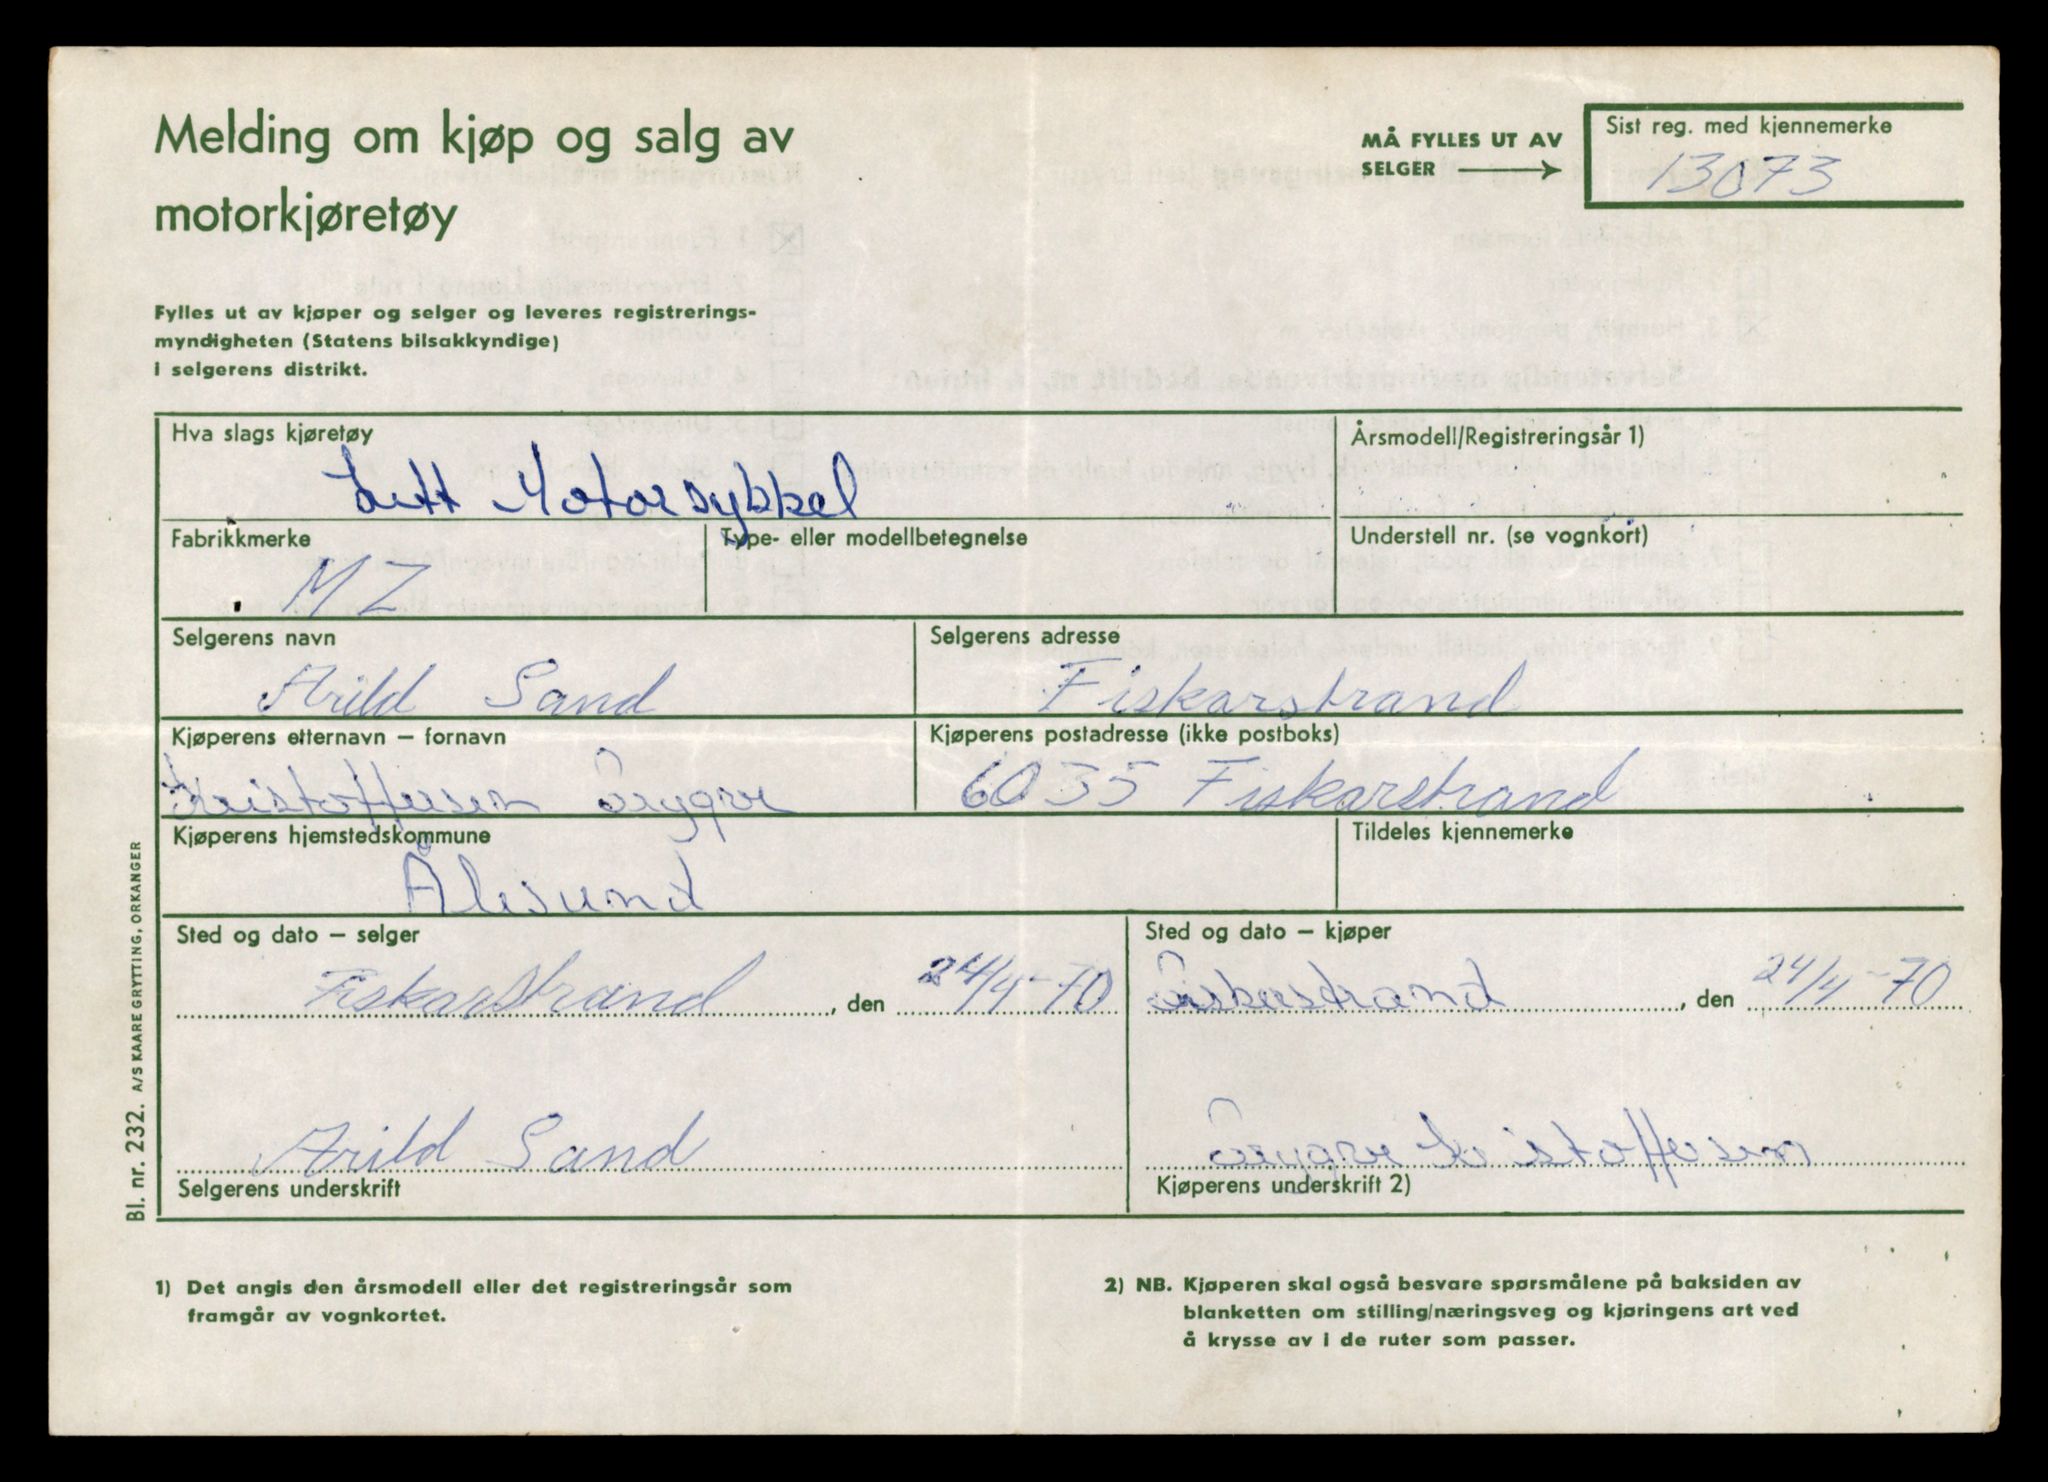 Melding om kjøp og salg av
motorkjøretøy
MÅ FYLLES UT AV
SELGER
Sist reg. med kjennemerke
13073
Fylles ut av kjøper og selger og leveres registrerings-
myndigheten (Statens bilsakkyndige)
i selgerens distrikt.
Hva slags kjøretøy
Lett Motorsykkel
Årsmodell/Registreringsår 1)
Fabrikkmerke
MZ
Type- eller modellbetegnelse
Understell nr. (se vognkort)
Selgerens navn
Arild Sand
Selgerens adresse
Fiskarstrand
Kjøperens etternavn – fornavn
Kristoffersen Trygve
Kjøperens postadresse (ikke postboks)
6035 Fiskarstrand
Kjøperens hjemstedskommune
Ålesund
Tildeles kjennemerke
Sted og dato – selger
Fiskarstrand, den 24/4-70
Sted og dato – kjøper
Fiskarstrand, den 24/4-70
Arild Sand
Selgerens underskrift
Trygve Kristoffersen
Kjøperens underskrift 2)
Bl. nr. 232. A/S KAARE GRYTTING, ORKANGER
1) Det angis den årsmodell eller det registreringsår som
framgår av vognkortet.
2) NB. Kjøperen skal også besvare spørsmålene på baksiden av
blanketten om stilling/næringsveg og kjøringens art ved
å krysse av i de ruter som passer.